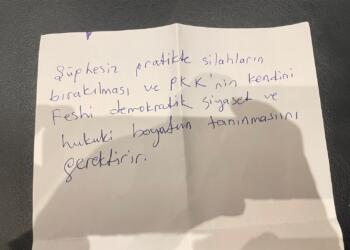 Şüphesiz pratikte silahların
bırakılması ve PKK'nin kendini
Feshi demokratik siyaset ve
hukuki boyutun tanınmasını
gerektirir.